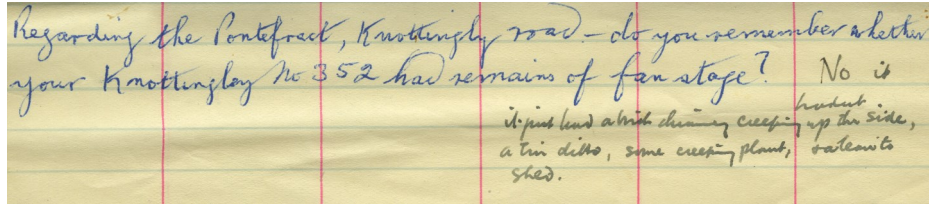 Regarding the Pontefract, Knottingly road – do you remember whether
your Knottingley No 352 had remains of fan stage? No it
hadnt
it just had a brick chimney creeping up the side,
a tin ditto, some creeping plant,
shed.